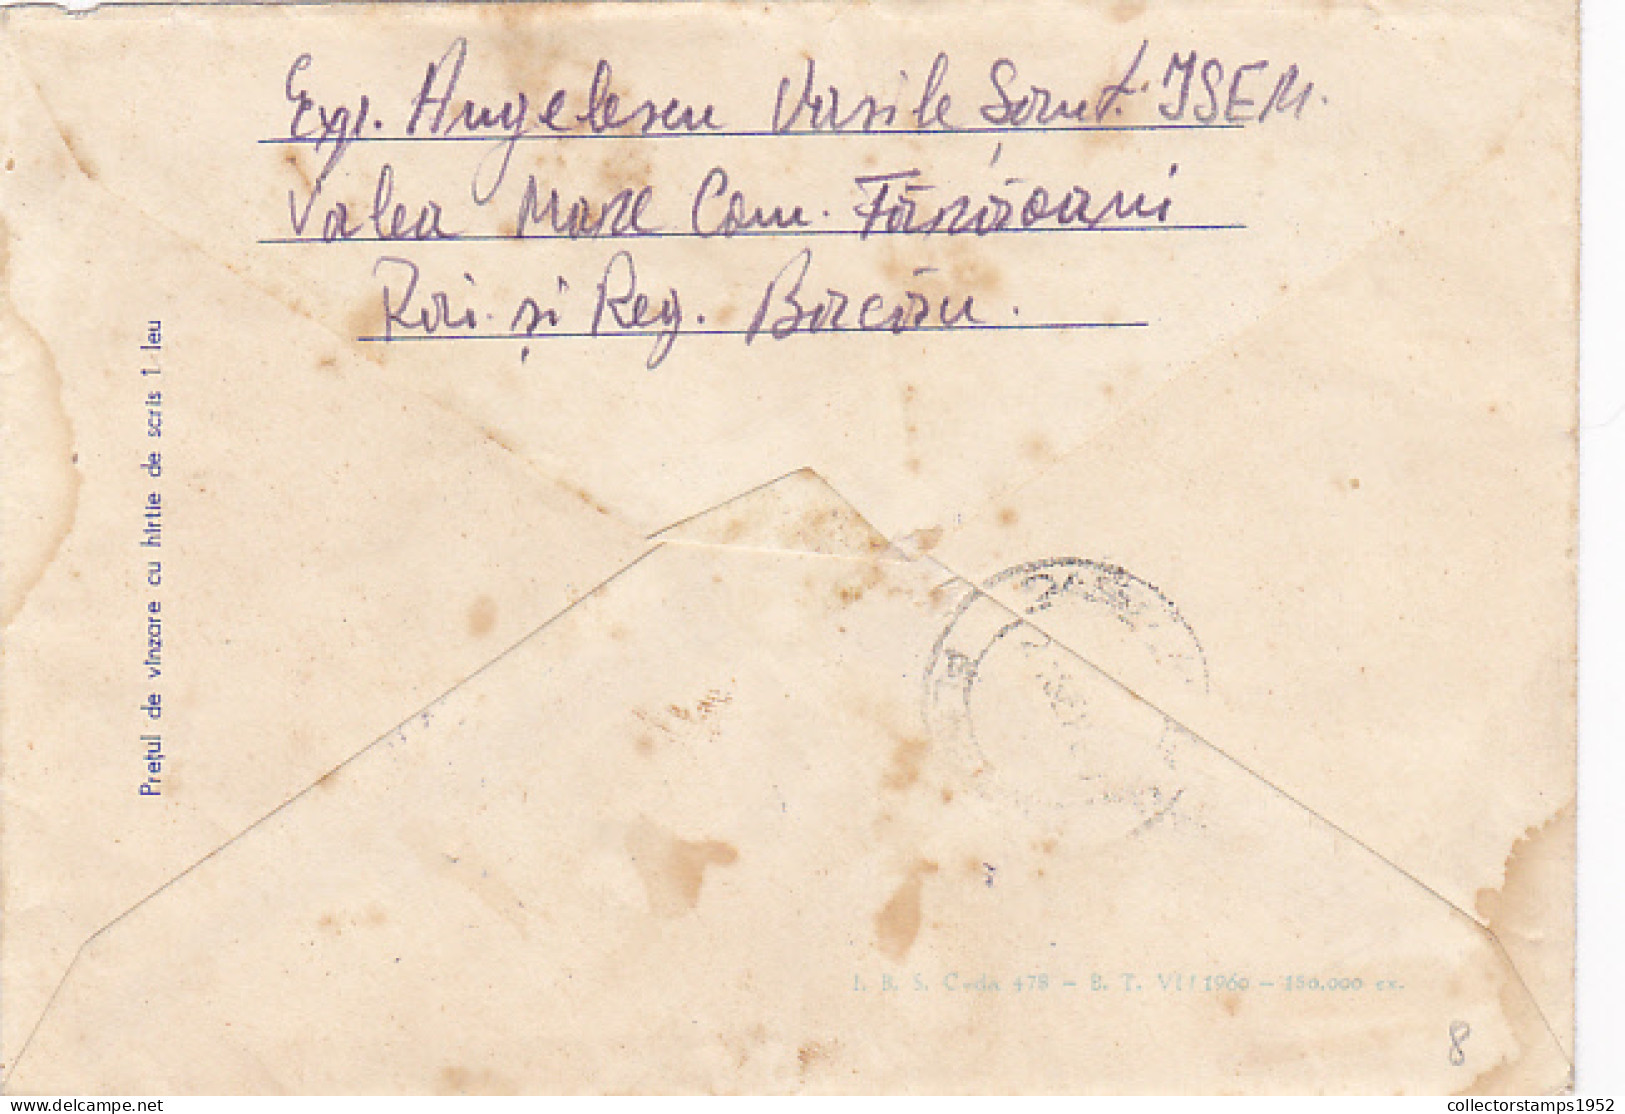 Exp. Angelescu Vasile Șant. ISEM.
Valea Mare Com. Fărăoani
Rai. și Reg. Bacău.
Prețul de vînzare cu hîrtie de scris 1 leu
I. B. S. Cvda 478 – B. T. VII 1960 – 150.000 ex.
8
www.delcampe.net
collectorstamps1952